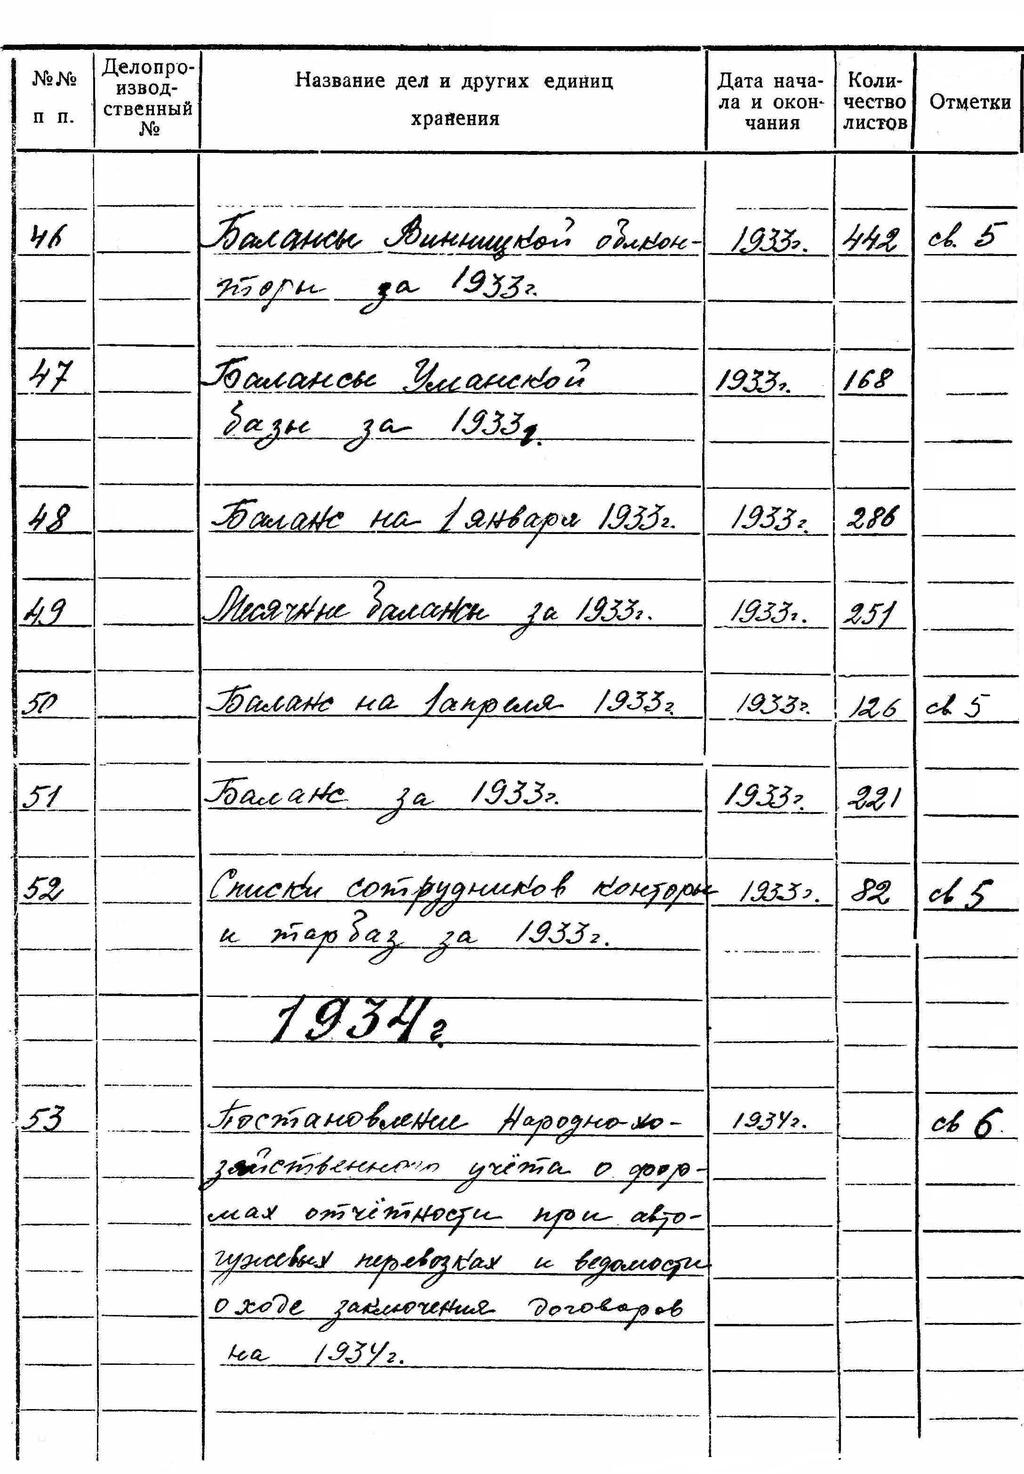 №№ п п.
Делопро-
извод-
ственный
№
Название дел и других единиц
хранения
Дата нача-
ла и окон-
чания
Коли-
чество
листов
Отметки
46 Балансы Винницкой облкон- 1933г. 442 св. 5
торы за 1933г.
47 Балансы Уманской 1933г. 168
базы за 1933г.
48 Баланс на 1 января 1933г. 1933г. 286
49 Месячные балансы за 1933г. 1933г. 251
50 Баланс на 1 апреля 1933г. 1933г. 126 св 5
51 Баланс за 1933г. 1933г. 221
52 Списки сотрудников конторы 1933г. 82 св 5
и тарбаз за 1933г.
1934г.
53 Постановление Народно-хо- 1934г. св 6.
зяйственного учёта о фор-
мах отчётности при авто-
гужевых перевозках и ведомости
о ходе заключения договаров
на 1934г.